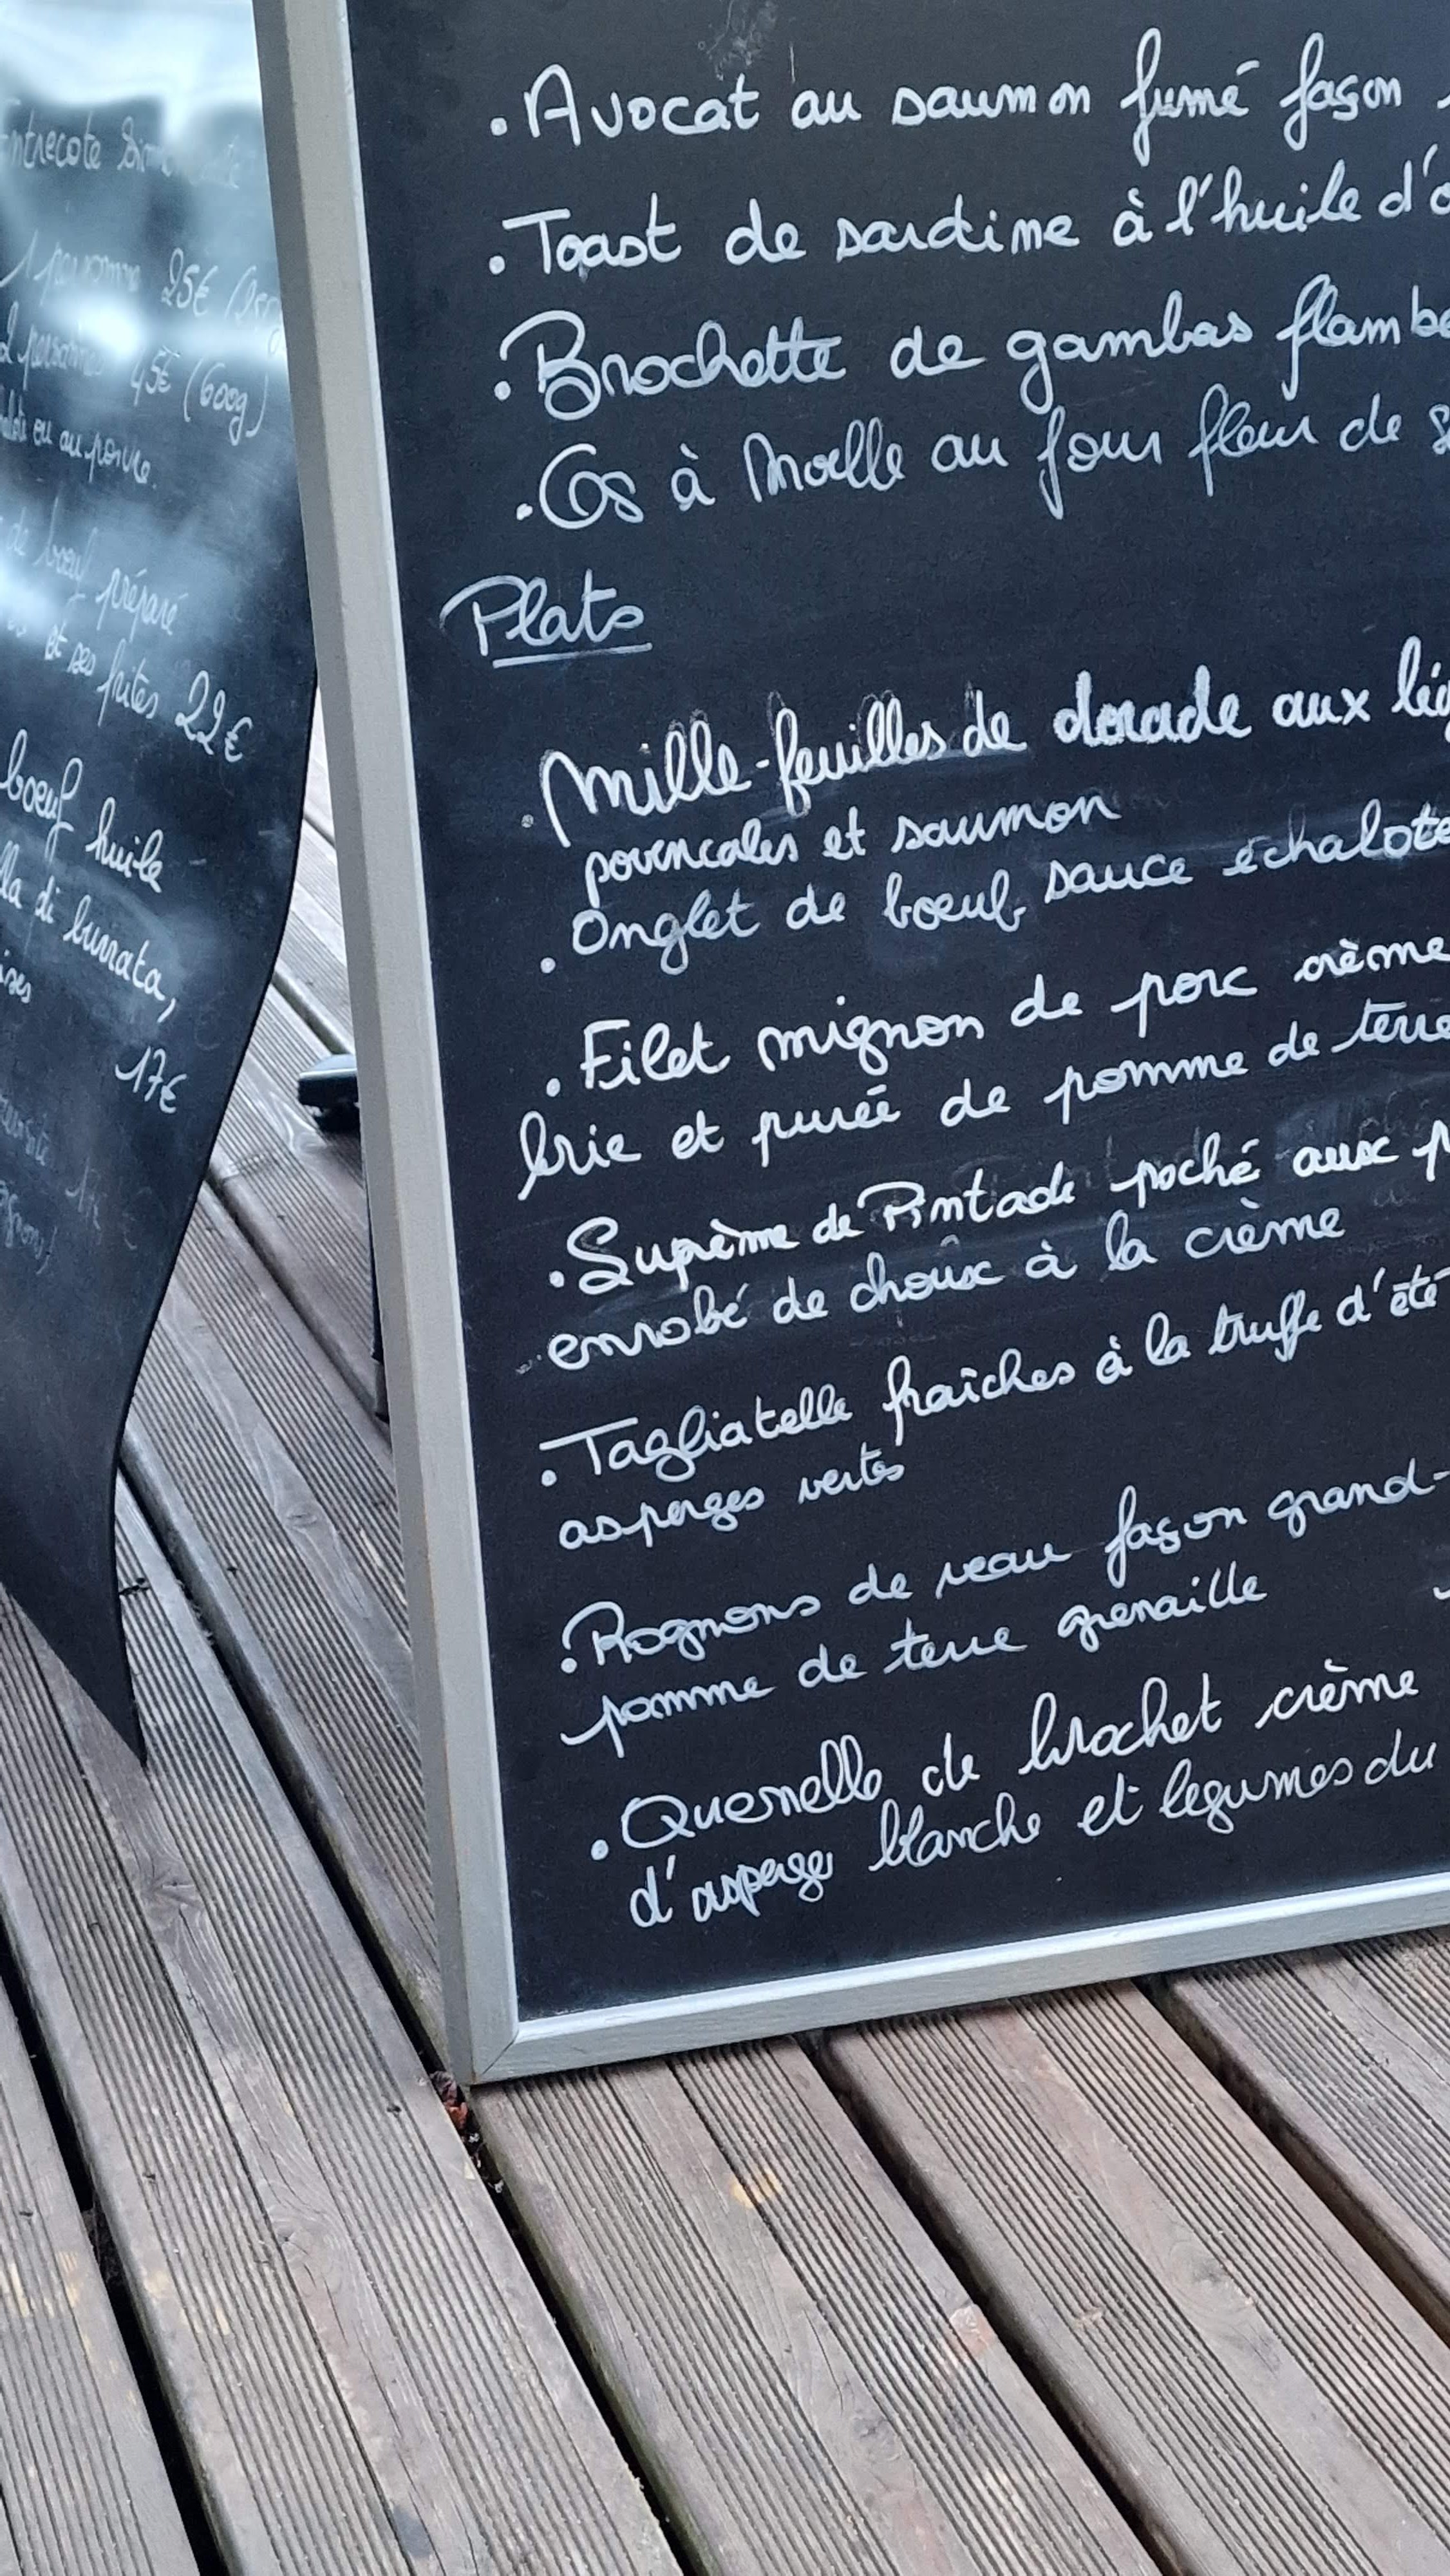 Entrecote
1 personne 25€
2 personnes 45€ (600g)
ou au poivre.
de bœuf préparé
et ses frites 22€
bœuf huile
di burrata,
17€
. Avocat au saumon fumé façon
. Toast de sardine à l'huile d'o
. Brochette de gambas flambé
. Os à Moelle au four fleur de s
Plats
. Mille-feuilles de dorade aux lég
provencales et saumon
. Onglet de boeuf sauce échalote
. Filet mignon de porc crème
brie et purée de pomme de terre
. Suprème de Pintade poché aux p
enrobé de choux à la crème
. Tagliatelle fraîches à la truffe d'été
asperges vertes
. Rognons de veau façon grand-
pomme de terre grenaille
. Quenelle de brochet crème
d'asperges blanche et legumes du